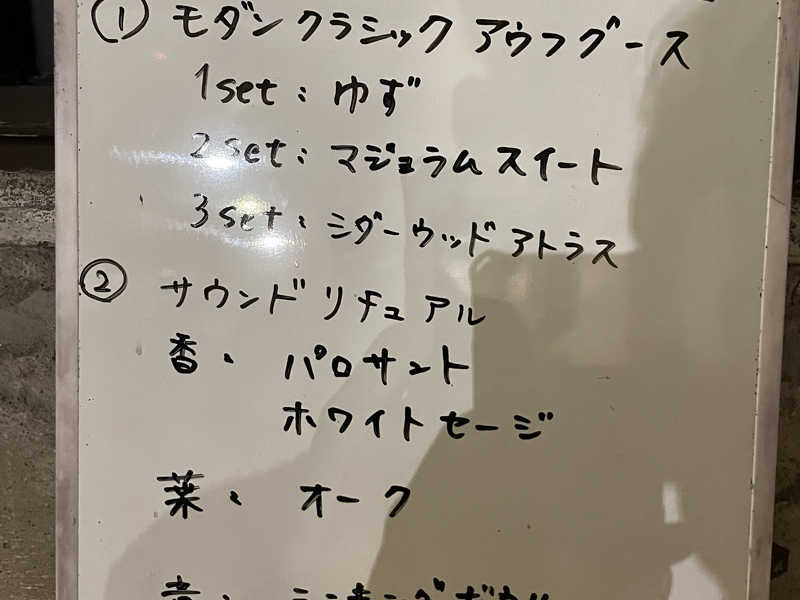 ① モダンクラシック アウフグース
1set: ゆず
2set: マジョラムスイート
3set: シダーウッドアトラス
② サウンドリチュアル
香、 パロサント
ホワイトセージ
葉、 オーク
音、 シンキングボウル